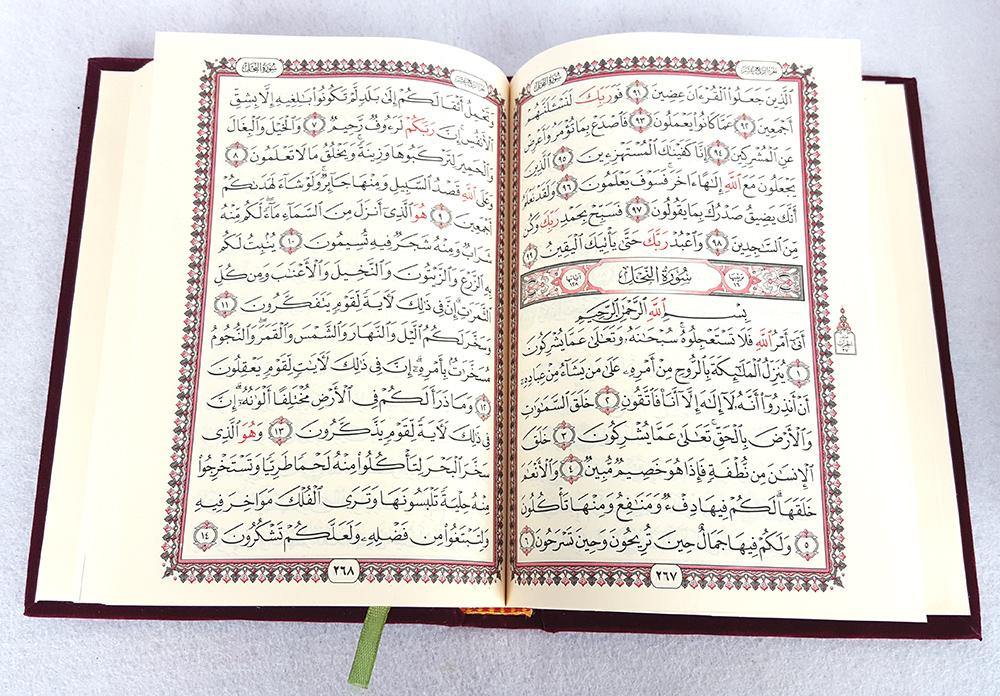 الجزء الرابع عشر سُورَةُ النَّحْلِ
ٱلَّذِينَ جَعَلُوا۟ ٱلْقُرْءَانَ عِضِينَ ٩١ فَوَرَبِّكَ لَنَسْـَٔلَنَّهُمْ
أَجْمَعِينَ ٩٢ عَمَّا كَانُوا۟ يَعْمَلُونَ ٩٣ فَٱصْدَعْ بِمَا تُؤْمَرُ وَأَعْرِضْ
عَنِ ٱلْمُشْرِكِينَ ٩٤ إِنَّا كَفَيْنَٰكَ ٱلْمُسْتَهْزِءِينَ ٩٥ ٱلَّذِينَ
يَجْعَلُونَ مَعَ ٱللَّهِ إِلَٰهًا ءَاخَرَ فَسَوْفَ يَعْلَمُونَ ٩٦ وَلَقَدْ نَعْلَمُ
أَنَّكَ يَضِيقُ صَدْرُكَ بِمَا يَقُولُونَ ٩٧ فَسَبِّحْ بِحَمْدِ رَبِّكَ وَكُن
مِّنَ ٱلسَّٰجِدِينَ ٩٨ وَٱعْبُدْ رَبَّكَ حَتَّىٰ يَأْتِيَكَ ٱلْيَقِينُ ٩٩
ترتيبها ١٦ سُورَةُ النَّحْلِ آياتها ١٢٨
بِسْمِ ٱللَّهِ ٱلرَّحْمَٰنِ ٱلرَّحِيمِ
أَتَىٰٓ أَمْرُ ٱللَّهِ فَلَا تَسْتَعْجِلُوهُ ۚ سُبْحَٰنَهُۥ وَتَعَٰلَىٰ عَمَّا يُشْرِكُونَ
١ يُنَزِّلُ ٱلْمَلَٰٓئِكَةَ بِٱلرُّوحِ مِنْ أَمْرِهِۦ عَلَىٰ مَن يَشَآءُ مِنْ عِبَادِهِۦٓ
أَنْ أَنذِرُوٓا۟ أَنَّهُۥ لَآ إِلَٰهَ إِلَّآ أَنَا۠ فَٱتَّقُونِ ٢ خَلَقَ ٱلسَّمَٰوَٰتِ
وَٱلْأَرْضَ بِٱلْحَقِّ ۚ تَعَٰلَىٰ عَمَّا يُشْرِكُونَ ٣ خَلَقَ
ٱلْإِنسَٰنَ مِن نُّطْفَةٍ فَإِذَا هُوَ خَصِيمٌ مُّبِينٌ ٤ وَٱلْأَنْعَٰمَ
خَلَقَهَا ۗ لَكُمْ فِيهَا دِفْءٌ وَمَنَٰفِعُ وَمِنْهَا تَأْكُلُونَ
٥ وَلَكُمْ فِيهَا جَمَالٌ حِينَ تُرِيحُونَ وَحِينَ تَسْرَحُونَ ٦
٢٦٧
الحزب ٢٧
الجزء الرابع عشر سُورَةُ النَّحْلِ
وَتَحْمِلُ أَثْقَالَكُمْ إِلَىٰ بَلَدٍ لَّمْ تَكُونُوا۟ بَٰلِغِيهِ إِلَّا بِشِقِّ
ٱلْأَنفُسِ ۚ إِنَّ رَبَّكُمْ لَرَءُوفٌ رَّحِيمٌ ٧ وَٱلْخَيْلَ وَٱلْبِغَالَ
وَٱلْحَمِيرَ لِتَرْكَبُوهَا وَزِينَةً ۚ وَيَخْلُقُ مَا لَا تَعْلَمُونَ ٨
وَعَلَى ٱللَّهِ قَصْدُ ٱلسَّبِيلِ وَمِنْهَا جَآئِرٌ ۚ وَلَوْ شَآءَ لَهَدَىٰكُمْ
أَجْمَعِينَ ٩ هُوَ ٱلَّذِىٓ أَنزَلَ مِنَ ٱلسَّمَآءِ مَآءً ۖ لَّكُم مِّنْهُ
شَرَابٌ وَمِنْهُ شَجَرٌ فِيهِ تُسِيمُونَ ١٠ يُنۢبِتُ لَكُم
بِهِ ٱلزَّرْعَ وَٱلزَّيْتُونَ وَٱلنَّخِيلَ وَٱلْأَعْنَٰبَ وَمِن كُلِّ
ٱلثَّمَرَٰتِ ۗ إِنَّ فِى ذَٰلِكَ لَءَايَةً لِّقَوْمٍ يَتَفَكَّرُونَ ١١
وَسَخَّرَ لَكُمُ ٱلَّيْلَ وَٱلنَّهَارَ وَٱلشَّمْسَ وَٱلْقَمَرَ ۖ وَٱلنُّجُومُ
مُسَخَّرَٰتٌۢ بِأَمْرِهِۦٓ ۗ إِنَّ فِى ذَٰلِكَ لَءَايَٰتٍ لِّقَوْمٍ يَعْقِلُونَ
١٢ وَمَا ذَرَأَ لَكُمْ فِى ٱلْأَرْضِ مُخْتَلِفًا أَلْوَٰنُهُۥٓ ۗ إِنَّ
فِى ذَٰلِكَ لَءَايَةً لِّقَوْمٍ يَذَّكَّرُونَ ١٣ وَهُوَ ٱلَّذِى
سَخَّرَ ٱلْبَحْرَ لِتَأْكُلُوا۟ مِنْهُ لَحْمًا طَرِيًّا وَتَسْتَخْرِجُوا۟
مِنْهُ حِلْيَةً تَلْبَسُونَهَا وَتَرَى ٱلْفُلْكَ مَوَاخِرَ فِيهِ
وَلِتَبْتَغُوا۟ مِن فَضْلِهِۦ وَلَعَلَّكُمْ تَشْكُرُونَ ١٤
٢٦٨